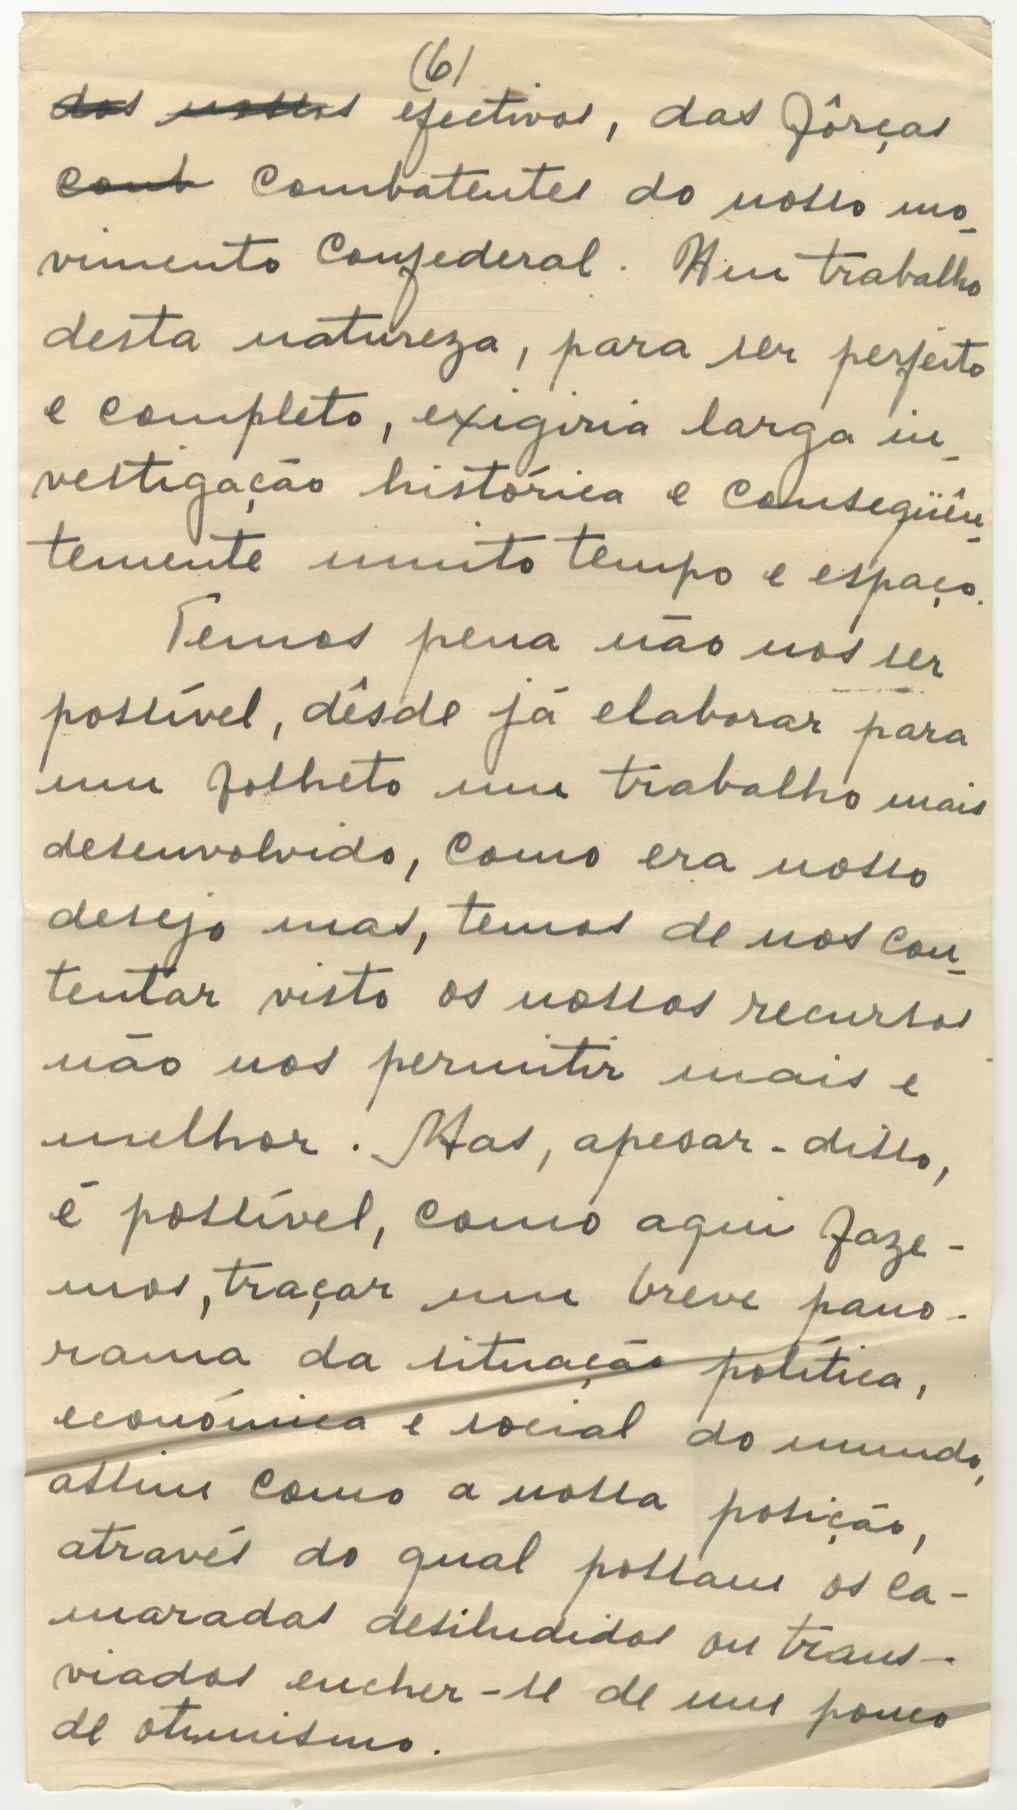 (6)
dos nossos efectivos, das fôrças
comb combatentes do nosso mo-
vimento Confederal. Um trabalho
desta natureza, para ser perfeito
e completo, exigiria larga in-
vestigação histórica e conseqüên-
temente muito tempo e espaço.
Temos pena não nos ser
possível, dêsde já elaborar para
um folheto um trabalho mais
desenvolvido, como era nosso
desejo mas, temos de nos con-
tentar visto os nossos recursos
não nos permitir mais e
melhor. Mas, apesar-disso,
é possível, como aqui faze-
mos, traçar um breve pano-
rama da situação política,
económica e social do mundo,
assim como a nossa posição,
através do qual possam os ca-
maradas desiludidos ou trans-
viados encher-se de um pouco
de otimismo.